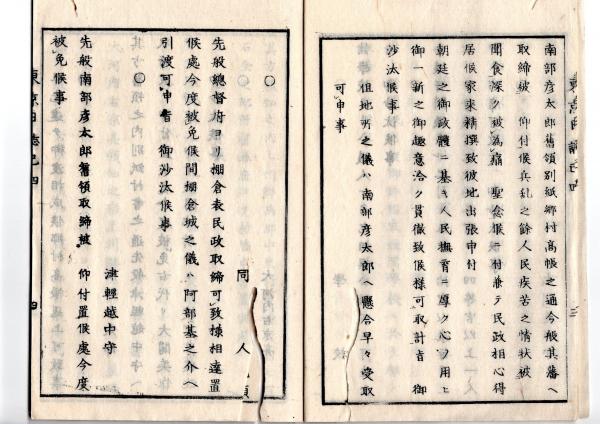 南部彦太郎舊領別紙郷村高帳之通今般其藩ヘ
取締被　仰付候兵乱之餘人民疾苦之情状被
聞食深ク被為痛　聖念候ニ付兼テ民政相心得
居候家来精撰致彼地出張申付
朝廷之御政體ニ基キ人民撫育ニ專ク心ヲ用ヒ
御一新之御趣意洽ク貫徹致候様可取計旨　御
沙汰候事
但地所之儀ハ南部彦太郎ヘ懸合早々受取
可申事
三
同人
先般總督府ヨリ棚倉表民政取締可致様相達置
候處今度被免候間棚倉城之儀ハ阿部基之介ヘ
引渡可申旨御沙汰候事
○
津輕越中守
先般南部彦太郎舊領取締被　仰付置候處今度
被免候事
東京日誌
四